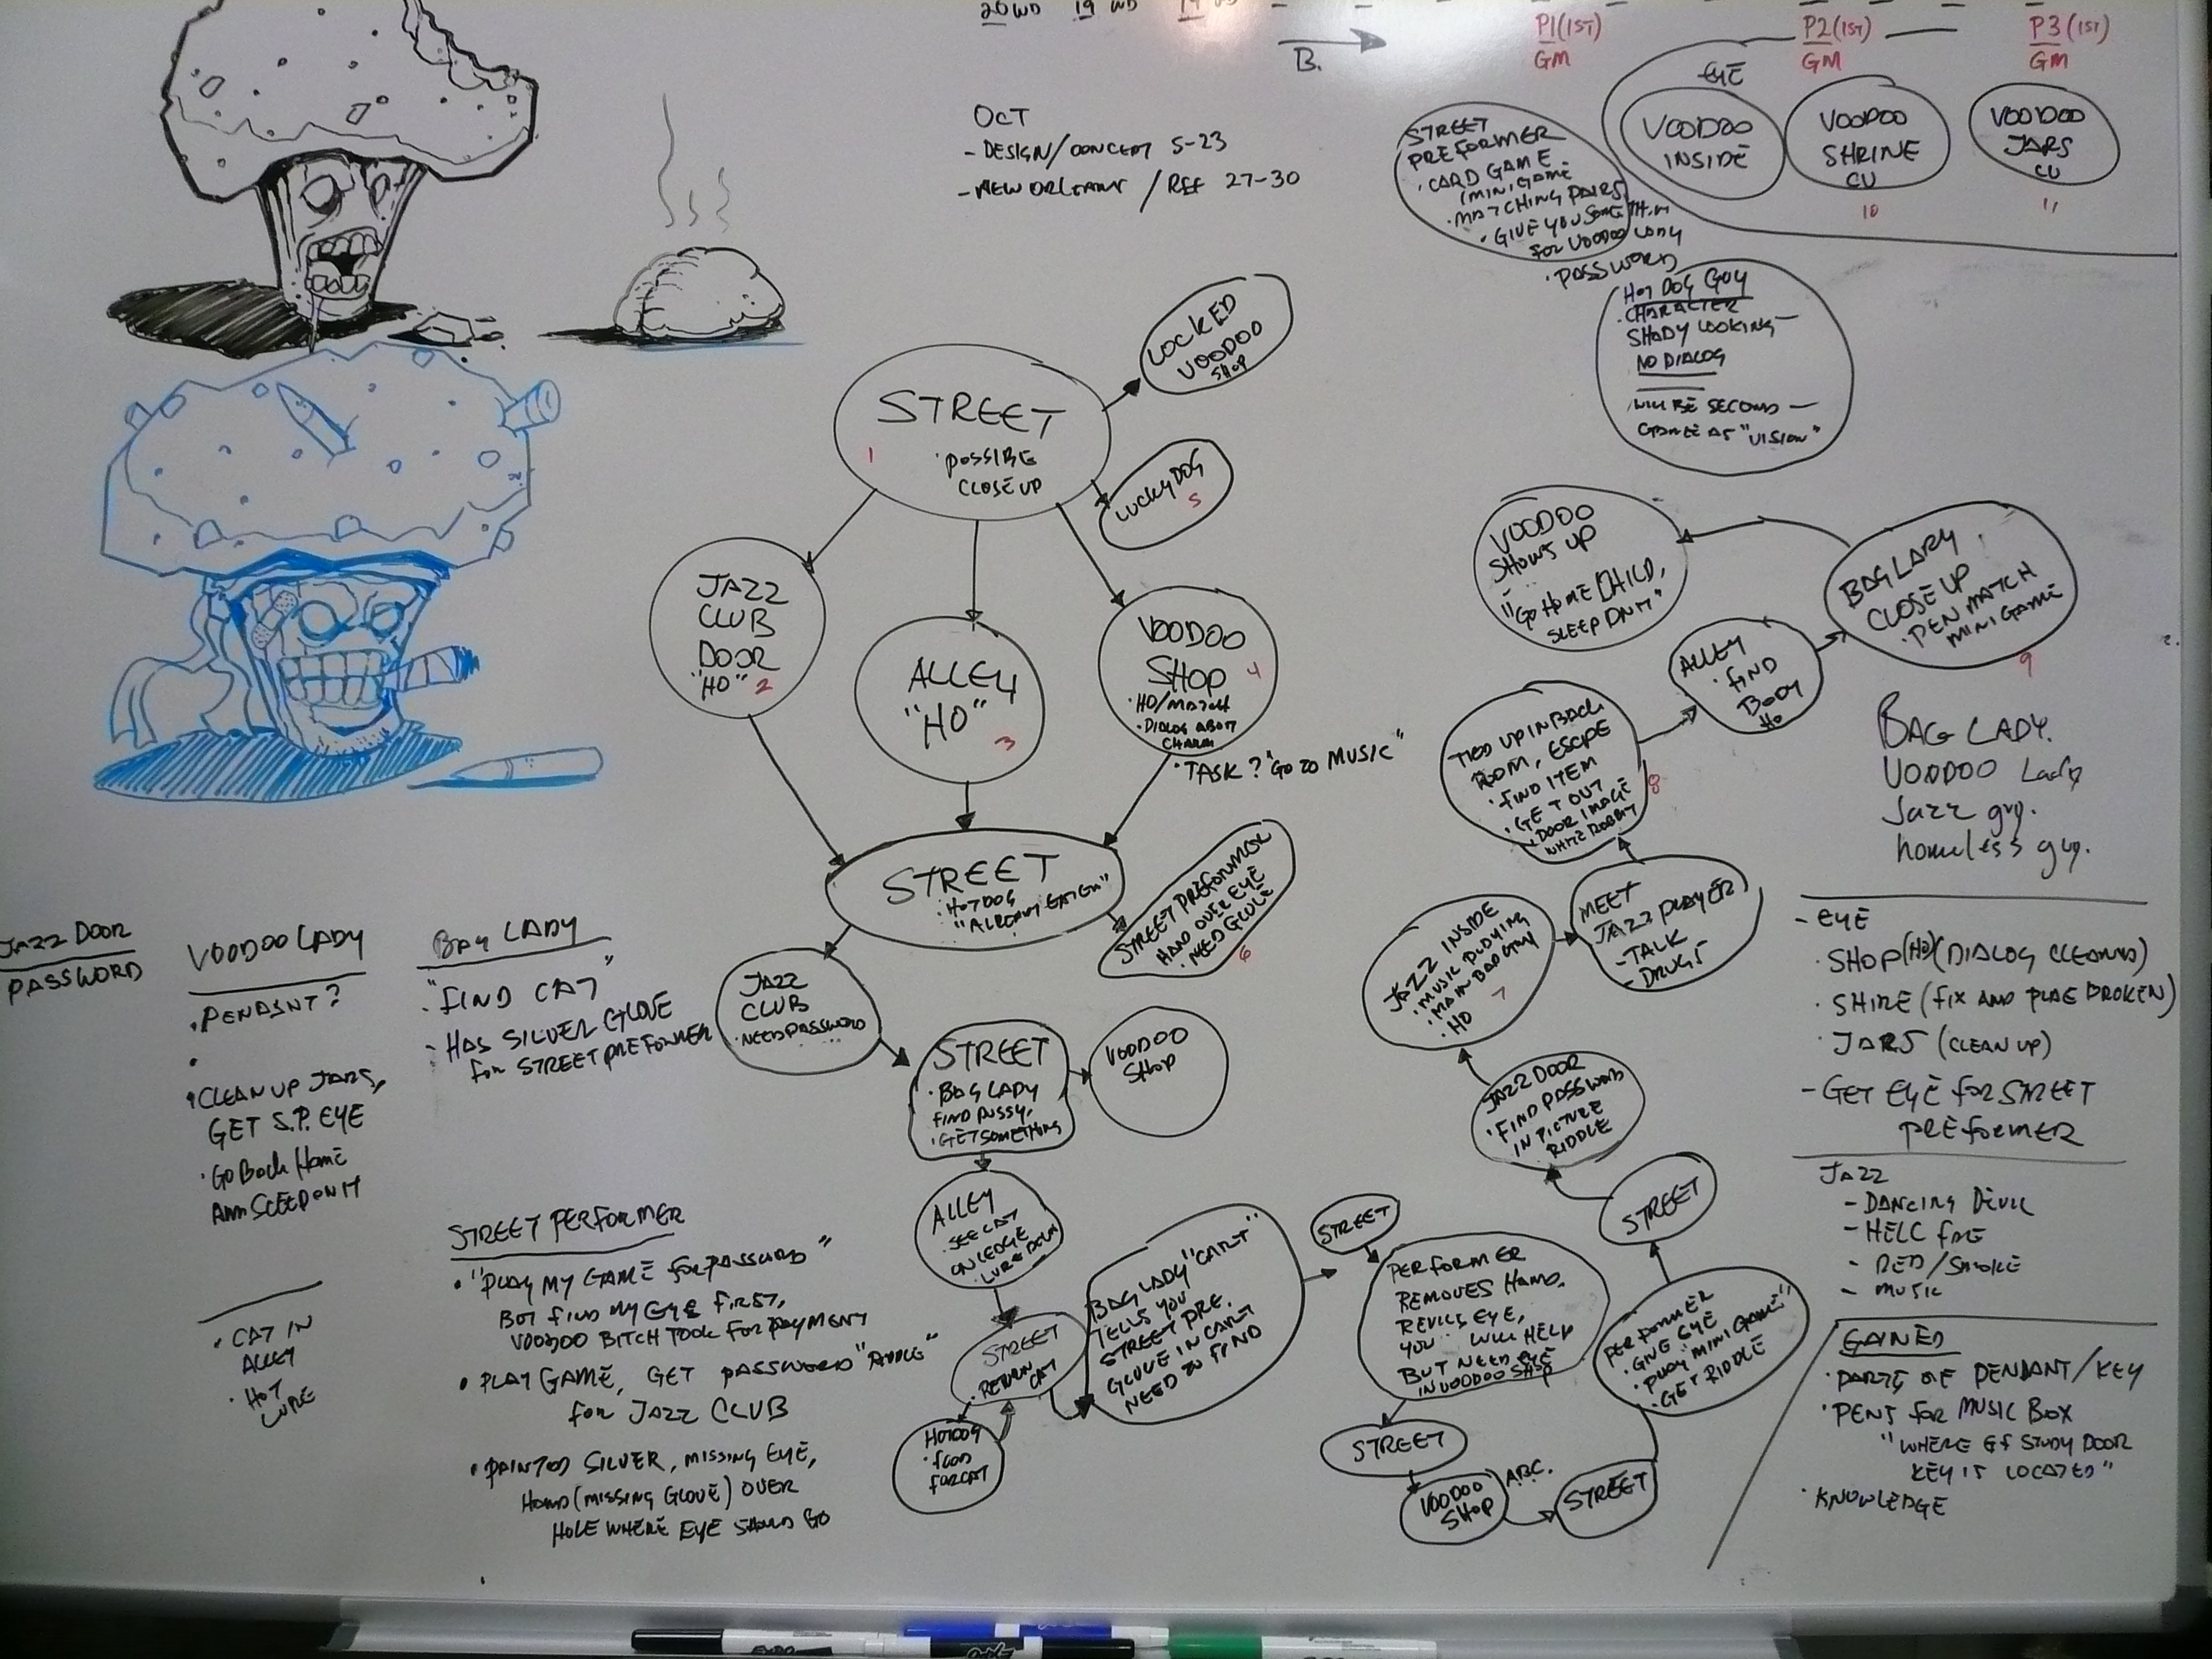 20 WD 19 WD 19
B.
P1(1ST)
GM
P2(1ST)
GM
P3(1ST)
GM
OCT
- DESIGN/CONCEPT 5-23
- NEW ORLEANS / REF 27-30
STREET
PREFORMER
· CARD GAME
(MINIGAME
· MATCHING PAIRS
· GIVE YOU SOMETHIN
FOR VOODOO LADY
· PASSWORD
EYE
VOODOO
INSIDE
VOODOO
SHRINE
CU
10
VOODOO
JARS
CU
11
HOT DOG GUY
· CHARACTER
SHADY LOOKING —
NO DIALOG
WILL BE SECOND —
GAME AS "VISION"
LOCKED
VOODOO
SHOP
STREET
1
· POSSIBE
CLOSE UP
LUCKY DOG
5
JAZZ
CLUB
DOOR
"HO" 2
ALLEY
"HO"
3
VOODOO
SHOP 4
· HO/MATCH
· DIALOG ABOUT
CHARM
· TASK? "GO TO MUSIC"
STREET
· HOTDOG
"ALREADY EATEN"
STREET PREFORMER
HAND OVER EYE
· NEED GLOVE
6
JAZZ
CLUB
· NEED PASSWORD
STREET
· BAG LADY
FIND PUSSY,
· GET SOMETHING
VOODOO
SHOP
ALLEY
· SEE CAT
ON LEDGE
· LURE DOWN
STREET
· RETURN
CAT
HOTDOG
· FOOD
FOR CAT
BAG LADY "CART"
TELLS YOU
STREET PRE.
GLOVE IN CART
NEED TO FIND
STREET
PERFORMER
REMOVES HAND.
REVILS EYE,
YOU WILL HELP
BUT NEED EYE
IN VOODOO SHOP
STREET
VOODOO
SHOP
A.B.C.
STREET
PERFORMER
· GIVE EYE
· PLAY "MINI GAME"
· GET RIDDLE
STREET
JAZZ DOOR
· FIND PASSWORD
IN PICTURE
RIDDLE
JAZZ INSIDE
· MUSIC PLAYING
· MAIN BAD GUY
· HO 7
MEET
JAZZ PLAYER
- TALK
- DRUGS
TIED UP IN BACK
ROOM, ESCAPE
· FIND ITEM
· GET OUT
· DOOR IMAGE
WHITE RABBIT
8
ALLEY
· FIND
BODY
HO
BAG LADY
CLOSE UP
· PEN MATCH
MINI GAME
9
VOODOO
SHOWS UP
"GO HOME CHILD,
SLEEP ON IT"
BAG LADY.
VOODOO Lady
Jazz guy.
homeless guy.
- EYE
· SHOP (HO) (DIALOG CLEANED)
· SHIRE (FIX AND PLAE BROKEN)
· JARS (CLEAN UP)
- GET EYE FOR STREET
PREFORMER
JAZZ
- DANCING DEVIL
- HELL FIRE
- RED/SMOKE
- MUSIC
GAINED
· PARTS OF PENDANT/KEY
· PENS FOR MUSIC BOX
"WHERE GF STUDY DOOR
KEY IS LOCATED"
· KNOWLEDGE
JAZZ DOOR
PASSWORD
VOODOO LADY
· PENDSNT?
· CLEAN UP JARS,
GET S.P. EYE
· GO BACK HOME
AND SLEEP ON IT
BAG LADY
· "FIND CAT"
- HAS SILVER GLOVE
FOR STREET PREFORMER
STREET PERFORMER
· "PLAY MY GAME FOR PASSWORD"
BUT FIND MY EYE FIRST,
VOODOO BITCH TOOK FOR PAYMENT
· PLAY GAME, GET PASSWORD
FOR JAZZ CLUB
· PAINTED SILVER, MISSING EYE,
HAND (MISSING GLOVE) OVER
HOLE WHERE EYE SHOULD GO
· CAT IN
ALLEY
· HOT
LURE